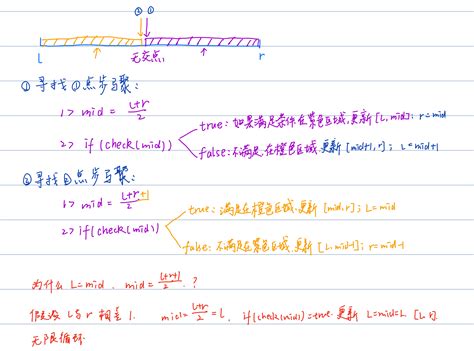 ② ①
无交点
L r
① 寻找①点步骤:
1> mid = L+r/2
2> if(check(mid))
true: 如果满足条件在紫色区域, 更新[L,mid]; r=mid
false: 不满足,在橙色区域,更新[mid+1,r]; L=mid+1
② 寻找②点步骤:
1> mid = L+r+1/2
2> if(check(mid))
true: 满足在橙色区域,更新[mid,r]; L=mid
false: 不满足在紫色区域,更新[L,mid-1]; r=mid-1
为什么 L=mid, mid = L+r+1/2 ?
假设 L与r 相差1. mid = L+r/2 = L, if(check(mid))=true. 更新 L=mid=L. [L,r]
无限循环.